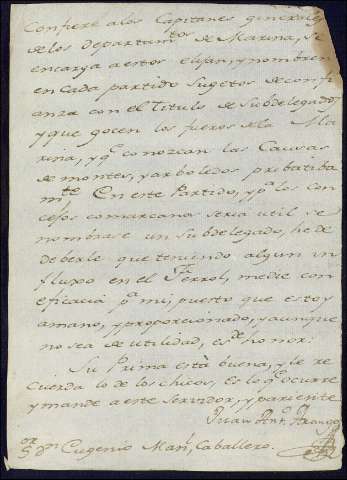 Confiere a los Capitanes generales
de los departamtos de Marina, se
encarga a estos elijan, y nombren
en cada partido Sugetos de confi
anza con el Titulo de Subdelegados
y que gocen los fueros de la Ma
rina, y qe conozcan las Causas
de montes, y arboledos pribatiba
mte En este Partido, y pa los con
cejos comarcanos seria util se
nombrase un Subdelegado, he de
deberle que teniendo algun in
fluxo en el Ferrol, medie con
eficacia pr mi, puesto que estoy
amano, y proporcionado, y aunque
no sea de utilidad, es de honor:
Su Prima està buena, y le re
cuerda lo de los chicos, Es lo qe ocurre
y mande a este Servidor, y pariente
Juan Anto Arango
Sor Dn Eugenio Manl Caballero.